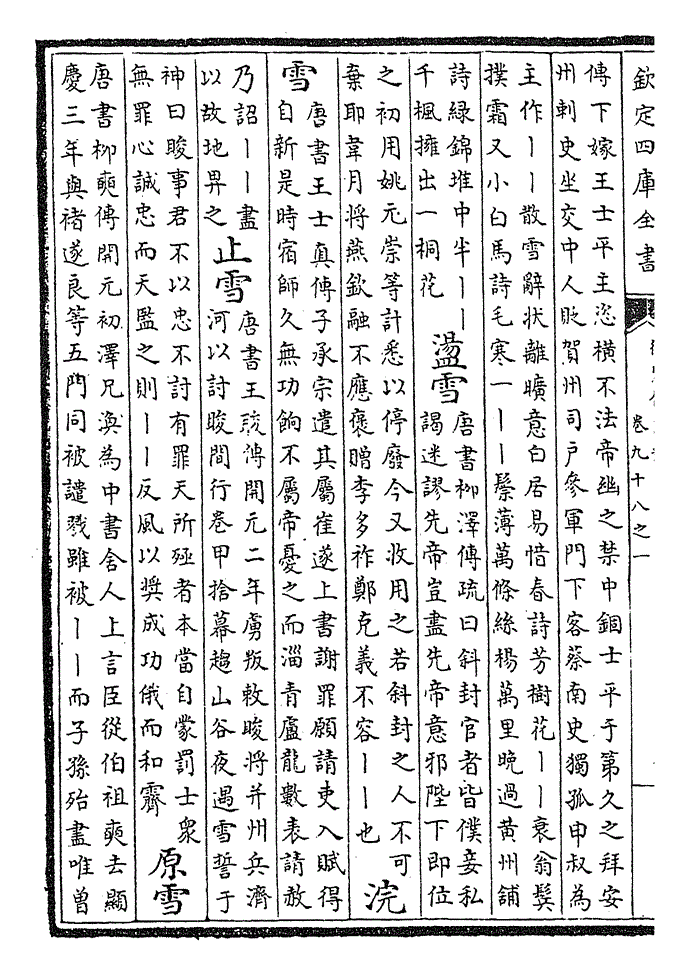 欽定四庫全書
卷九十八之一
傳下嫁王士平主恣橫不法帝幽之禁中錮士平于第久之拜安
州刺史坐交中人貶賀州司戶參軍門下客蔡南史獨孤申叔為
主作丨丨散雪辭狀離曠意白居易惜春詩芳樹花丨丨衰翁鬂
撲霜又小白馬詩毛寒一丨丨鬃薄萬條絲楊萬里晚過黃州舖
詩綠錦堆中半丨丨
千楓擁出一桐花
盪雪
唐書柳澤傳疏曰斜封官者皆僕妾私
謁迷謬先帝豈盡先帝意邪陛下即位
之初用姚元崇等計悉以停廢今又收用之若斜封之人不可
棄耶韋月將燕欽融不應褒贈李多祚鄭克義不容丨丨也
浣
雪
唐書王士真傳子承宗遣其屬崔遂上書謝罪願請吏入賦得
自新是時宿師久無功餉不屬帝憂之而淄青盧龍數表請赦
乃詔丨丨盡
以故地畀之
止雪
唐書王晙傳開元二年虜叛敕晙將并州兵濟
河以討晙間行卷甲捨幕趨山谷夜遇雪誓于
神曰晙事君不以忠不討有罪天所殛者本當自蒙罰士衆
無罪心誠忠而天監之則丨丨反風以奬成功俄而和霽
原雪
唐書柳奭傳開元初澤兄渙為中書舍人上言臣從伯祖奭去顯
慶三年與褚遂良等五門同被譴戮雖被丨丨而子孫殆盡唯曾